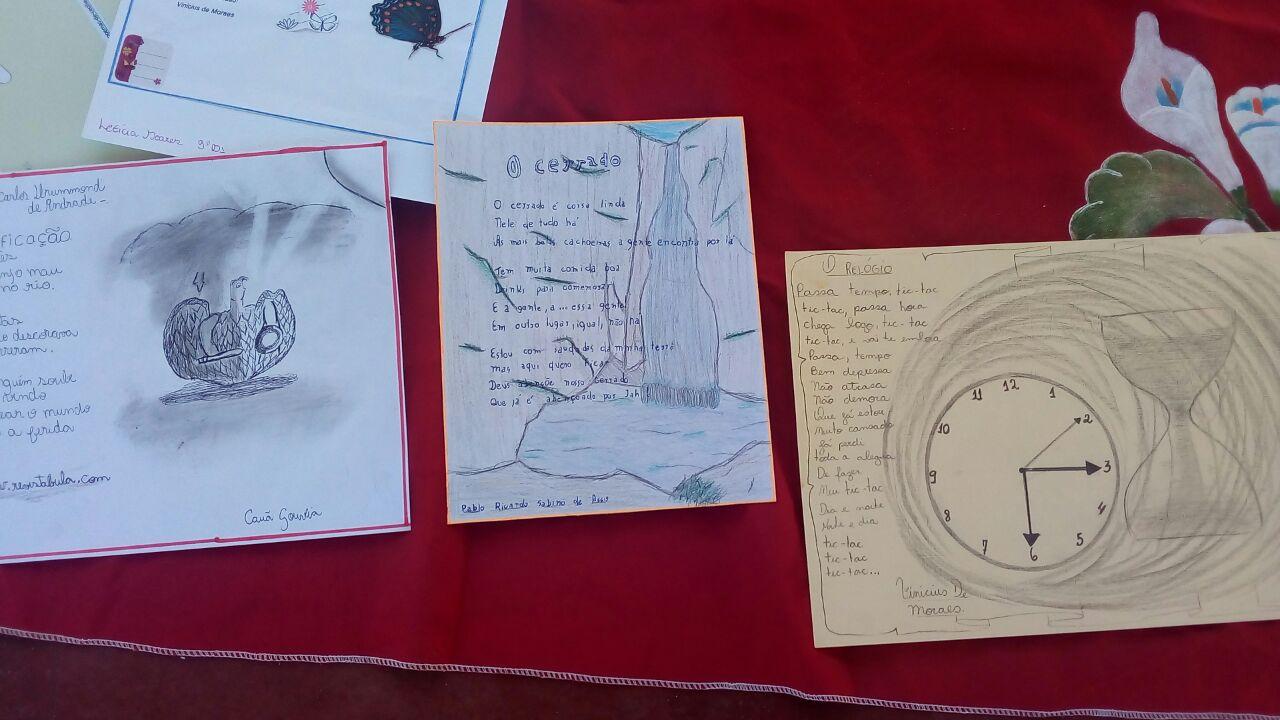 Vinícius de Moraes
Letícia Soares 9º
Carlos Drummond
de Andrade -
ficação
anjo mau
no rio.
descoraram
reram.
nguém soube
o mundo
a ferida
Cauã Gouvêa
O cerrado
O cerrado é coisa linda
Nele de tudo há
As mais belas cachoeiras a gente encontra por lá
Tem muita comida boa
Drink, para comemorar
E a gente, a... essa gente
Em outro lugar, igual, não há
Estou com saudades da minha terra
mas aqui quero ficar
Deus abençoe nosso cerrado
Que já é abençoado por Jah
Pablo Ricardo Sabino de
O RELÓGIO
Passa tempo, tic-tac
tic-tac, passa hora
chega logo, tic-tac
tic-tac, e vai te embora
Passa, tempo
Bem depressa
Não atrasa
Não demora
Que já estou
Muito cansado
Já perdi
toda a alegria
De fazer
Meu tic-tac
Dia e noite
Noite e dia
tic-tac
tic-tac
tic-tac...
Vinicius De
Moraes.
12
11 1
10 2
9 3
8 4
7 5
6